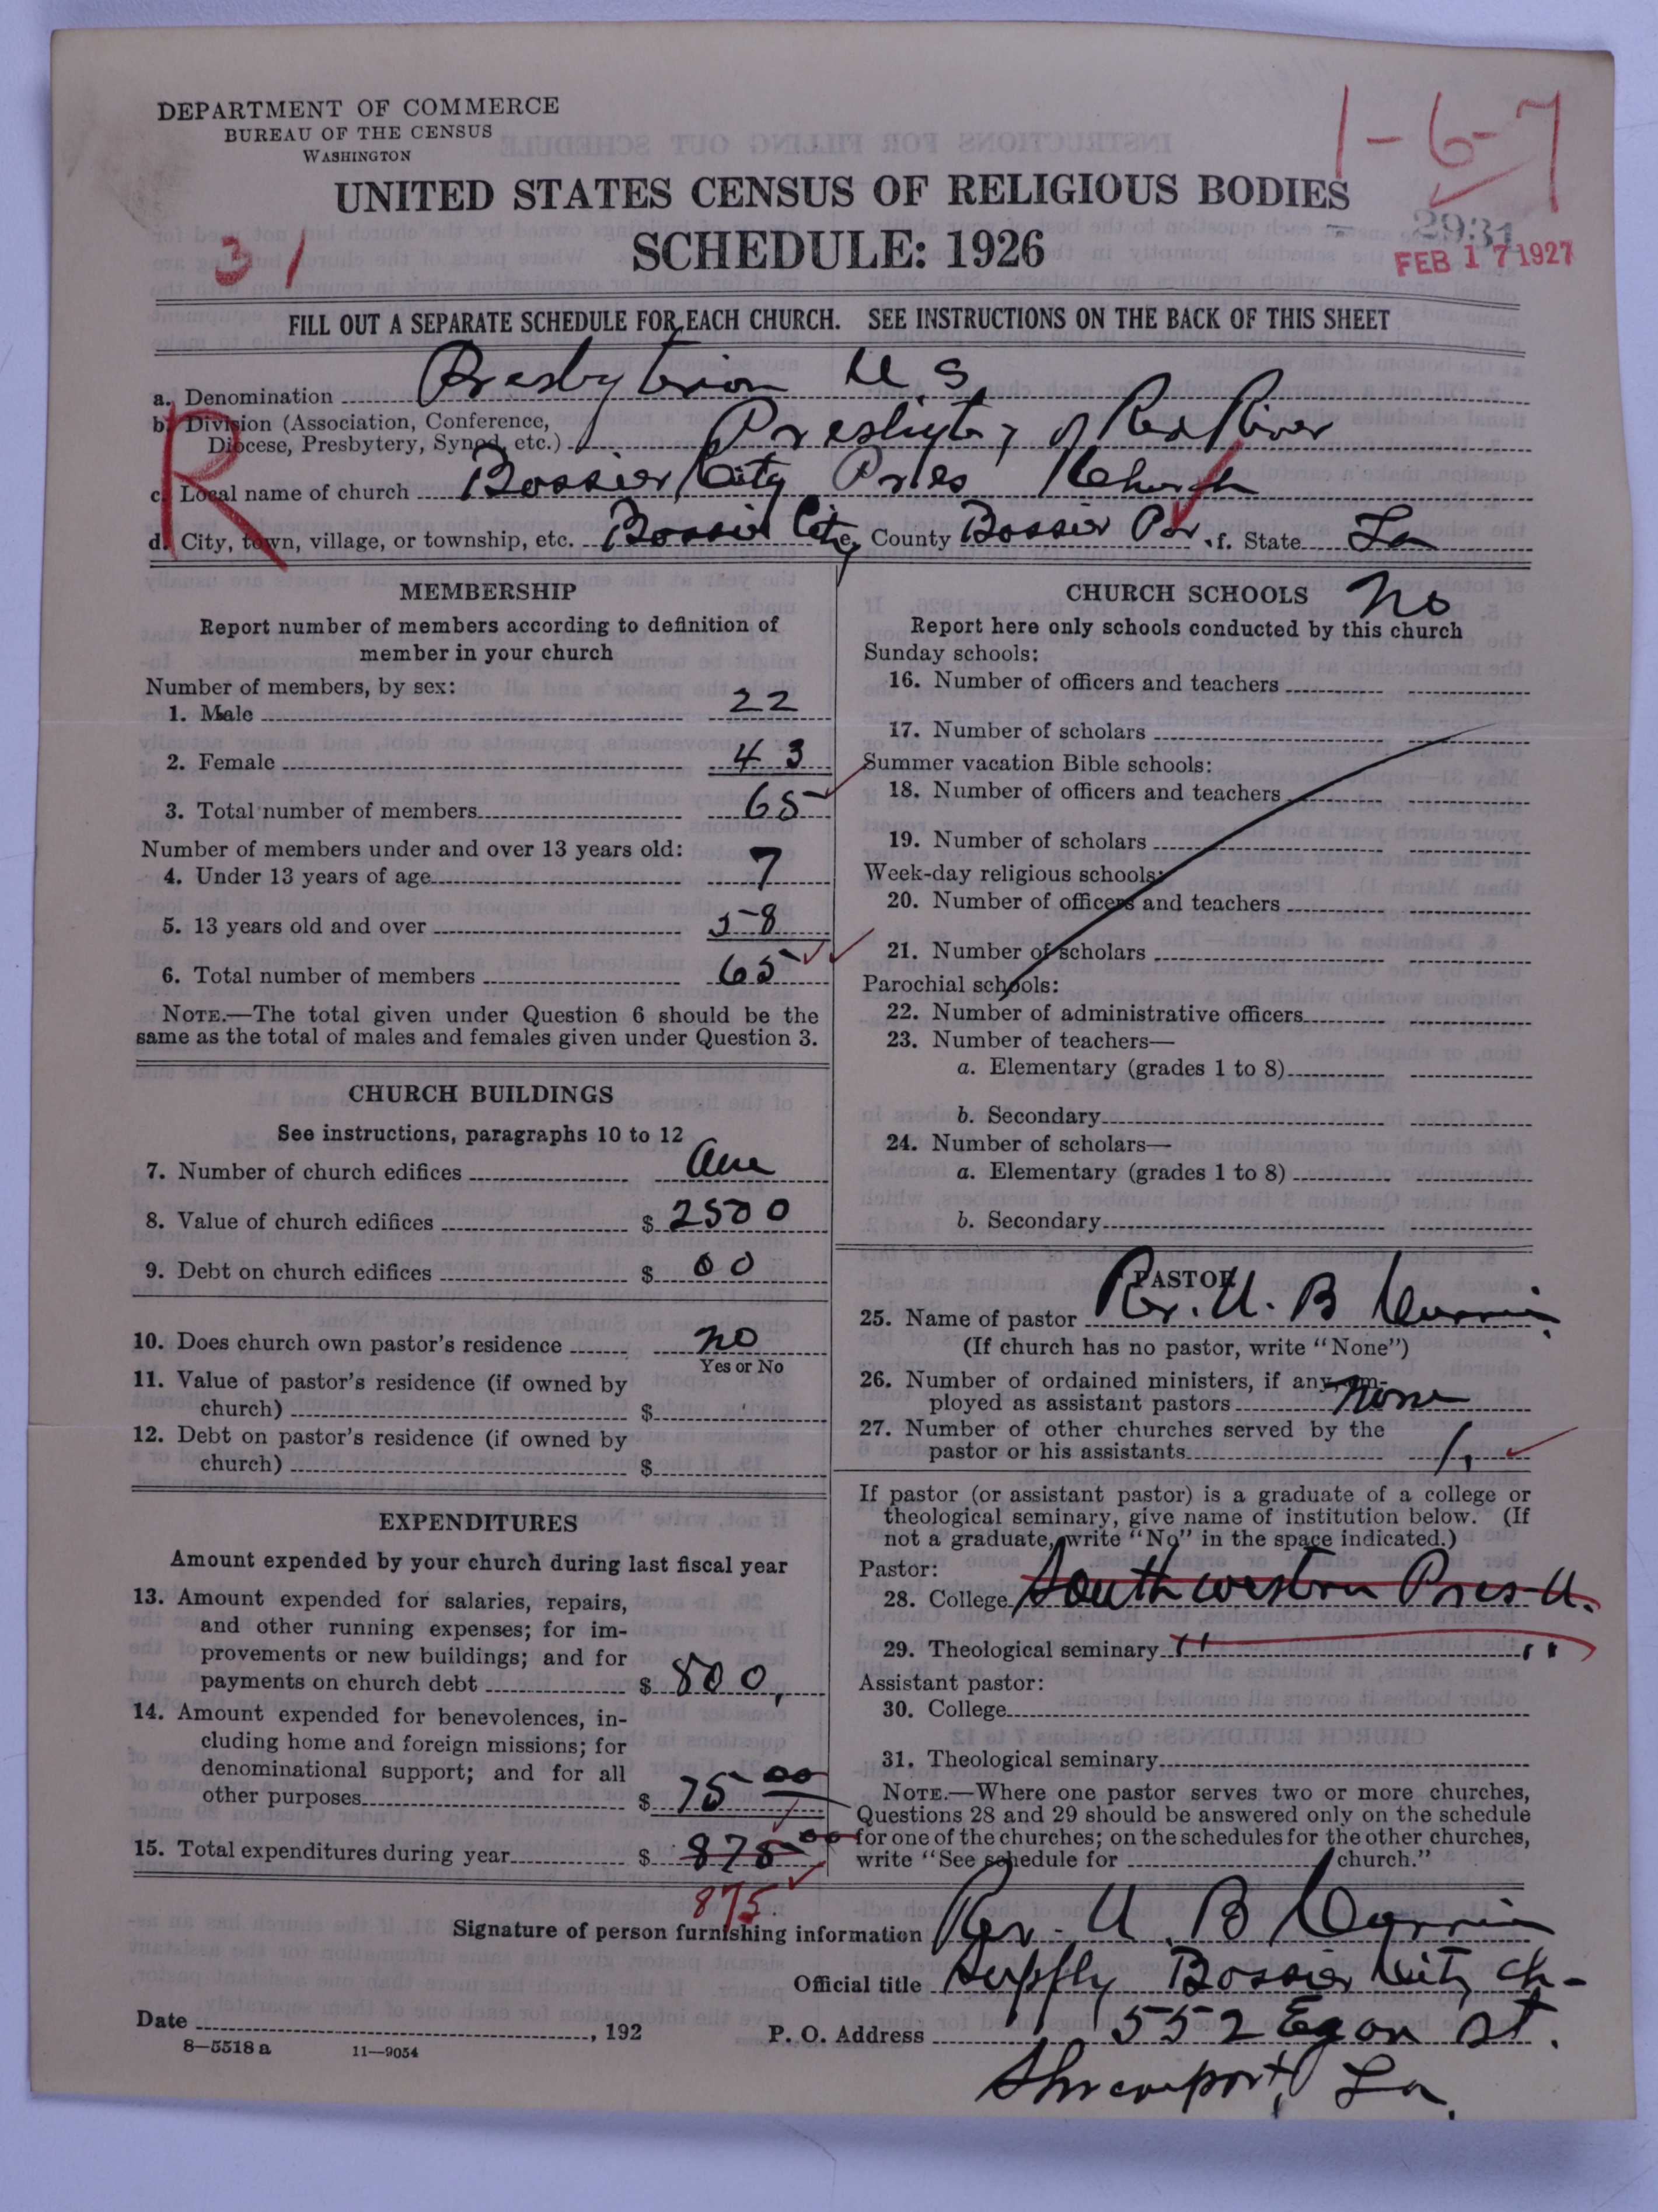 DEPARTMENT OF COMMERCE
BUREAU OF THE CENSUS
WASHINGTON
1-6-7
UNITED STATES CENSUS OF RELIGIOUS BODIES
SCHEDULE: 1926
31
2931
FEB 17 1927
FILL OUT A SEPARATE SCHEDULE FOR EACH CHURCH. SEE INSTRUCTIONS ON THE BACK OF THIS SHEET
a. Denomination Presbyterian U S
b. Division (Association, Conference, Diocese, Presbytery, Synod, etc.) Presbytery of Red River
R
c. Local name of church Bossier City Pres Church
d. City, town, village, or township, etc. Bossier City e. County Bossier Par. f. State La
MEMBERSHIP
Report number of members according to definition of
member in your church
Number of members, by sex:
1. Male 22
2. Female 43
3. Total number of members 65
Number of members under and over 13 years old:
4. Under 13 years of age 7
5. 13 years old and over 58
6. Total number of members 65
NOTE.—The total given under Question 6 should be the
same as the total of males and females given under Question 3.
CHURCH BUILDINGS
See instructions, paragraphs 10 to 12
7. Number of church edifices One
8. Value of church edifices $ 2500
9. Debt on church edifices $ 00
10. Does church own pastor's residence no
Yes or No
11. Value of pastor's residence (if owned by
church) $
12. Debt on pastor's residence (if owned by
church) $
EXPENDITURES
Amount expended by your church during last fiscal year
13. Amount expended for salaries, repairs,
and other running expenses; for im-
provements or new buildings; and for
payments on church debt $ 800,
14. Amount expended for benevolences, in-
cluding home and foreign missions; for
denominational support; and for all
other purposes $ 75 00
15. Total expenditures during year $ 875 00
875
CHURCH SCHOOLS no
Report here only schools conducted by this church
Sunday schools:
16. Number of officers and teachers
17. Number of scholars
Summer vacation Bible schools:
18. Number of officers and teachers
19. Number of scholars
Week-day religious schools:
20. Number of officers and teachers
21. Number of scholars
Parochial schools:
22. Number of administrative officers
23. Number of teachers—
a. Elementary (grades 1 to 8)
b. Secondary
24. Number of scholars—
a. Elementary (grades 1 to 8)
b. Secondary
PASTOR
25. Name of pastor Rev. U. B. Currie
(If church has no pastor, write "None")
26. Number of ordained ministers, if any, em-
ployed as assistant pastors none
27. Number of other churches served by the
pastor or his assistants 1.
If pastor (or assistant pastor) is a graduate of a college or
theological seminary, give name of institution below. (If
not a graduate, write "No" in the space indicated.)
Pastor:
28. College Southwestern Pres. U.
29. Theological seminary " "
Assistant pastor:
30. College
31. Theological seminary
NOTE.—Where one pastor serves two or more churches,
Questions 28 and 29 should be answered only on the schedule
for one of the churches; on the schedules for the other churches,
write "See schedule for church."
Signature of person furnishing information Rev. U. B Currie
Official title Supply Bossier City Ch-
Date , 192
P. O. Address 552 Egan St.
Shreveport, La.
8—5518 a 11—9054